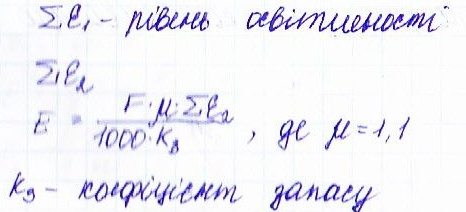 ΣЕ₁ - рівень освітленості
ΣЕ₂
Е = F·μ·ΣЕ₂ / 1000·Кз , де μ=1,1
Кз - коефіцієнт запасу